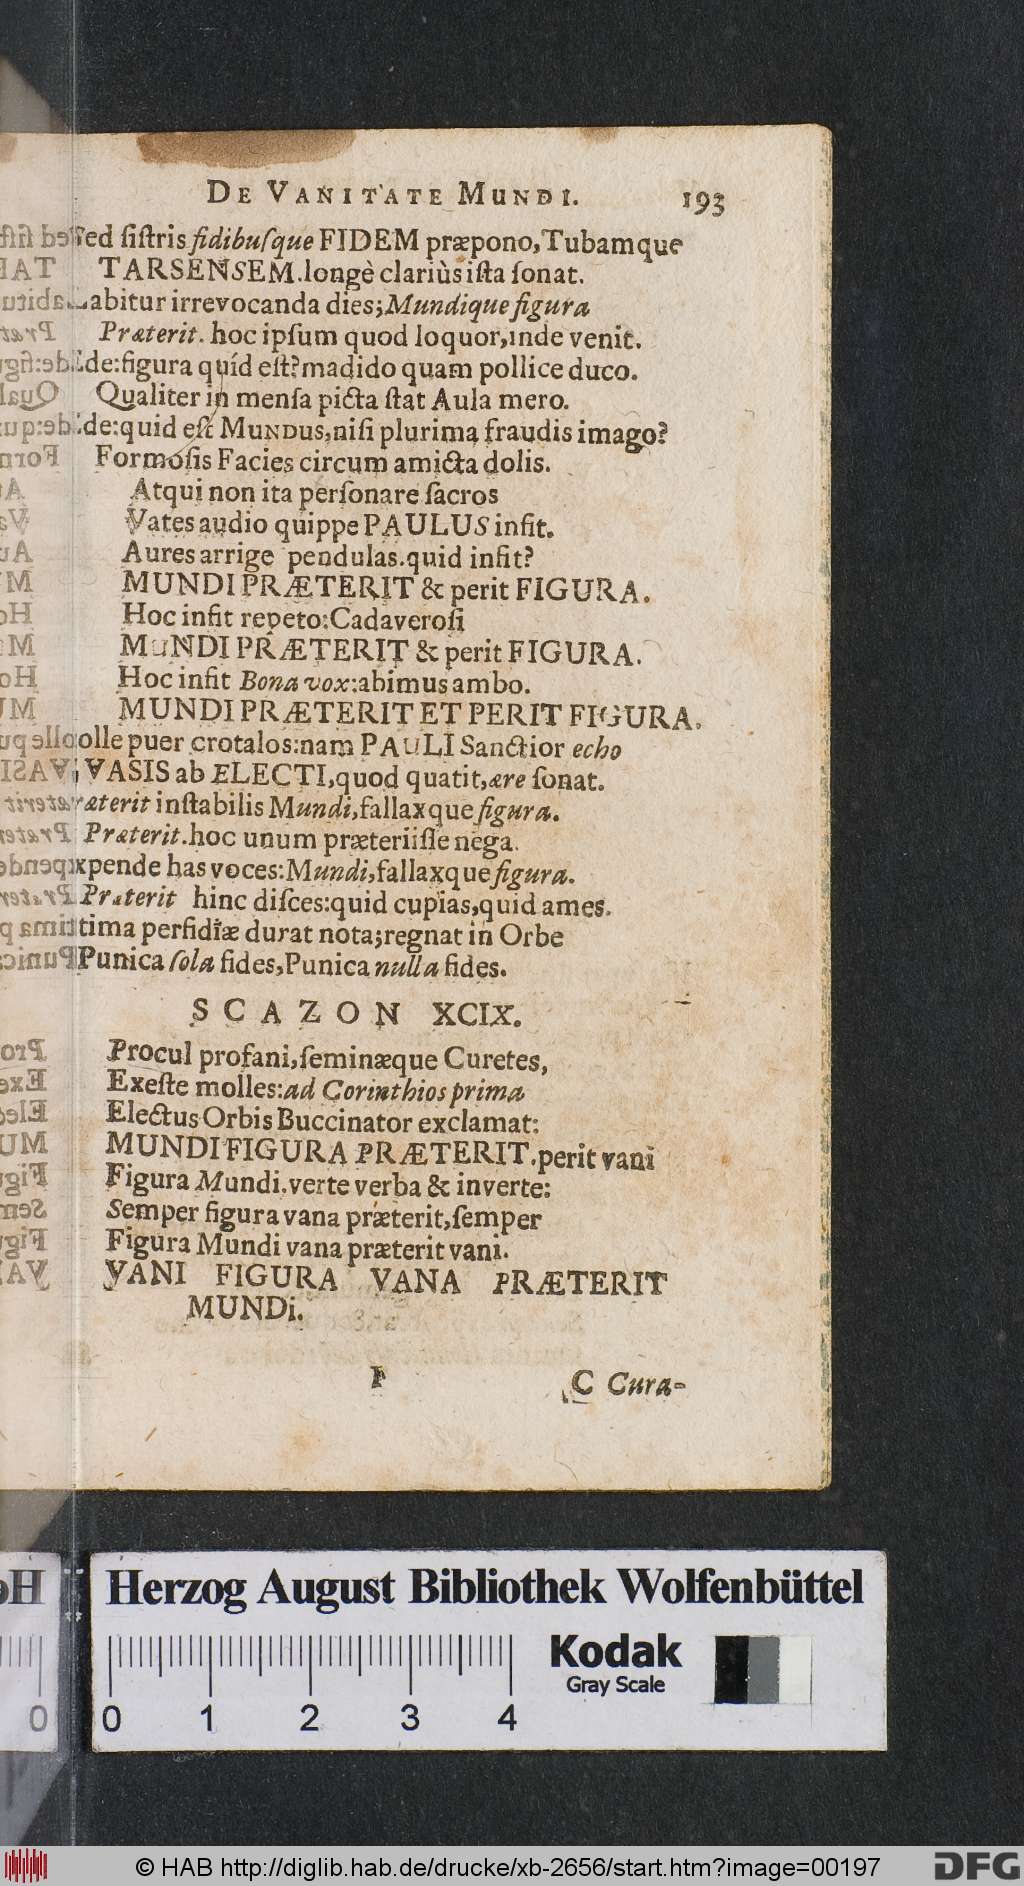 DE VANITATE MUNDI. 193
Sed ſiſtris fidibuſque FIDEM præpono, Tubamque
TARSENSEM. longè clariùs iſta ſonat.
Labitur irrevocanda dies; Mundique figura
Præterit. hoc ipſum quod loquor, inde venit.
de: figura quíd eſt? madido quam pollice duco.
Qualiter in menſa picta ſtat Aula mero.
de: quid eſt MUNDUS, niſi plurima fraudis imago?
Formoſis Facies circum amicta dolis.
Atqui non ita perſonare ſacros
Vates audio quippe PAULUS infit.
Aures arrige pendulas. quid infit?
MUNDI PRÆTERIT & perit FIGURA.
Hoc infit repeto: Cadaveroſi
MUNDI PRÆTERIT & perit FIGURA.
Hoc infit Bona vox: abimus ambo.
MUNDI PRÆTERIT ET PERIT FIGURA.
olle puer crotalos: nam PAULI Sanctior echo
VASIS ab ELECTI, quod quatit, ære ſonat.
ræterit inſtabilis Mundi, fallaxque figura.
Præterit. hoc unum præteriiſſe nega.
xpende has voces: Mundi, fallaxque figura.
Præterit hinc diſces: quid cupias, quid ames.
tima perfidiæ durat nota; regnat in Orbe
Punica ſola fides, Punica nulla fides.
SCAZON XCIX.
Procul profani, ſeminæque Curetes,
Exeſte molles: ad Corinthios prima
Electus Orbis Buccinator exclamat:
MUNDI FIGURA PRÆTERIT. perit vani
Figura Mundi. verte verba & inverte:
Semper figura vana præterit, ſemper
Figura Mundi vana præterit vani.
VANI FIGURA VANA PRÆTERIT
MUNDi.
C Cura-
Herzog August Bibliothek Wolfenbüttel
Kodak
Gray Scale
0 0 1 2 3 4
© HAB http://diglib.hab.de/drucke/xb-2656/start.htm?image=00197
DFG